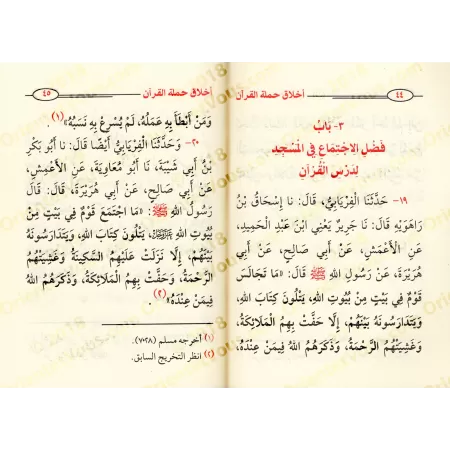 ٤٤
أخلاق حملة القرآن
٣- بَابُ
فَضْلِ الِاجْتِمَاعِ فِي المَسْجِدِ
لِدَرْسِ القُرْآنِ
١٩- حَدَّثَنَا الْفِرْيَابِيُّ، قَالَ: نا إِسْحَاقُ بْنُ
رَاهَوَيْهِ قَالَ: نَا جَرِيرٌ يَعْنِي ابْنَ عَبْدِ الْحَمِيدِ،
عَنِ الْأَعْمَشِ، عَنْ أَبِي صَالِحٍ، عَنْ أَبِي
هُرَيْرَةَ، عَنْ رَسُولِ اللهِ ﷺ قَالَ: «مَا تَجَالَسَ
قَوْمٌ فِي بَيْتٍ مِنْ بُيُوتِ اللهِ، يَتْلُونَ كِتَابَ اللهِ،
وَيَتَدَارَسُونَهُ بَيْنَهُمْ، إِلَّا حَفَّتْ بِهِمُ الْمَلَائِكَةُ،
وَغَشِيَتْهُمُ الرَّحْمَةُ، وَذَكَرَهُمُ اللهُ فِيمَنْ عِنْدَهُ،
أخلاق حملة القرآن
٤٥
وَمَنْ أَبْطَأَ بِهِ عَمَلُهُ، لَمْ يُسْرِعْ بِهِ نَسَبُهُ»(١).
٢٠- وَحَدَّثَنَا الْفِرْيَابِيُّ أَيْضًا قَالَ: نا أَبُو بَكْرِ
بْنُ أَبِي شَيْبَةَ، نَا أَبُو مُعَاوِيَةَ، عَنِ الْأَعْمَشِ،
عَنْ أَبِي صَالِحٍ، عَنْ أَبِي هُرَيْرَةَ، قَالَ: قَالَ
رَسُولُ اللهِ ﷺ: «مَا اجْتَمَعَ قَوْمٌ فِي بَيْتٍ مِنْ
بُيُوتِ اللهِ، يَتْلُونَ كِتَابَ اللهِ، وَيَتَدَارَسُونَهُ
بَيْنَهُمْ، إِلَّا نَزَلَتْ عَلَيْهِمُ السَّكِينَةُ وَغَشِيَتْهُمُ
الرَّحْمَةُ، وَحَفَّتْ بِهِمُ الْمَلَائِكَةُ، وَذَكَرَهُمُ اللهُ
فِيمَنْ عِنْدَهُ»(٢).
(١) أخرجه مسلم (٧٠٢٨).
(٢) انظر التخريج السابق.